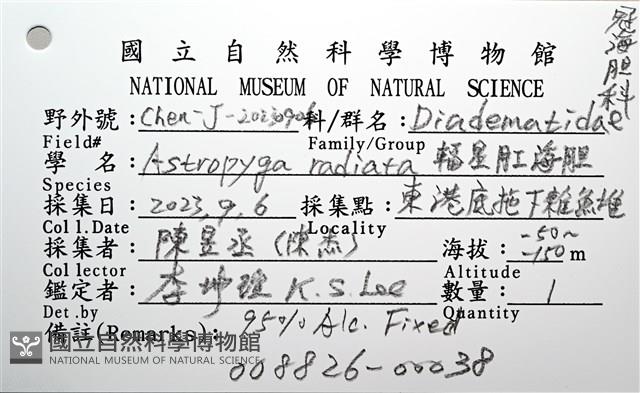 冠海胆科
國立自然科學博物館
NATIONAL MUSEUM OF NATURAL SCIENCE
野外號：Chen-J-20230906 科/群名：Diadematidae
Field# Family/Group
學 名：Astropyga radiata 輻星肛海胆
Species
採集日：2023.9.6 採集點：東港底拖下雜魚堆
Coll.Date Locality
採集者：陳昱丞（陳杰） 海拔：-50~-150 m
Collector Altitude
鑑定者：李坤瑄 K.S.Lee 數量：1
Det.by Quantity
備註(Remarks)：95% Alc. Fixed
國立自然科學博物館
NATIONAL MUSEUM OF NATURAL SCIENCE
008826-00038